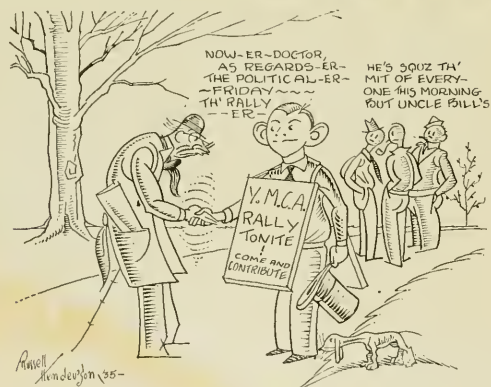 NOW-ER-DOCTOR,
AS REGARDS-ER-
THE POLITICAL-ER-
~FRIDAY~~~
TH' RALLY
--ER-
HE'S SQUZ TH'
MIT OF EVERY-
ONE THIS MORNING
BUT UNCLE BILL'S
Y.M.C.A.
RALLY
TONITE
!
COME AND
CONTRIBUTE
Russell
Henderson '35-